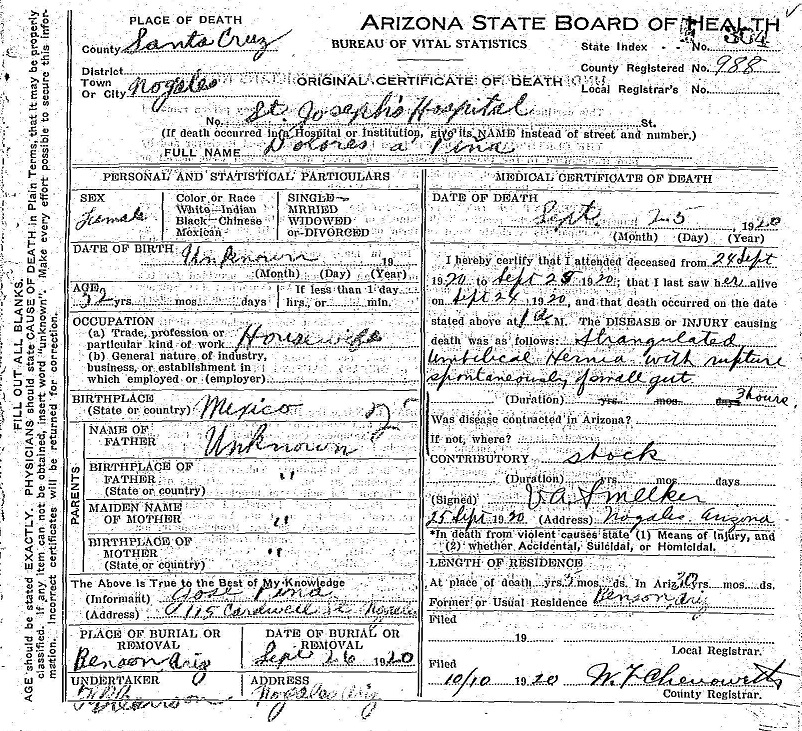 PLACE OF DEATH
ARIZONA STATE BOARD OF HEALTH
County Santa Cruz
BUREAU OF VITAL STATISTICS
State Index - - No. 364
District
County Registered No. 988
Town Or City Nogales
ORIGINAL CERTIFICATE OF DEATH
Local Registrar's No.
No. St. Joseph's Hospital St.
(If death occurred in a Hospital or Institution, give its NAME instead of street and number.)
FULL NAME Dolores a Pina
PERSONAL AND STATISTICAL PARTICULARS
SEX
Female
Color or Race
White-Indian
Black-Chinese
Mexican
SINGLE
MRRIED
WIDOWED
or DIVORCED
DATE OF BIRTH Unknown 19
(Month) (Day) (Year)
AGE
52 yrs. mos. days
If less than 1 day
hrs. or min.
OCCUPATION
(a) Trade, profession or
particular kind of work Housewife
(b) General nature of industry,
business, or establishment in
which employed or (employer)
BIRTHPLACE
(State or country) Mexico
PARENTS
NAME OF
FATHER Unknown
BIRTHPLACE OF
FATHER "
(State or country)
MAIDEN NAME
OF MOTHER "
BIRTHPLACE OF
MOTHER "
(State or country)
The Above is True to the Best of My Knowledge
(Informant) José Pina
(Address) 115 Cardwell st Nogales
PLACE OF BURIAL OR
REMOVAL
Benson Ariz
DATE OF BURIAL OR
REMOVAL
Sept 26 1920
UNDERTAKER
ADDRESS
Nogales Ariz
MEDICAL CERTIFICATE OF DEATH
DATE OF DEATH
Sept. 25 1920
(Month) (Day) (Year)
I hereby certify that I attended deceased from 24 Sept
1920 to Sept 25 1920; that I last saw her alive
on Sept 24 1920, and that death occurred on the date
stated above at 1 a M. The DISEASE or INJURY causing
death was as follows: Strangulated
Umbilical Hernia with rupture
spontaneously of small gut
(Duration) yrs. mos. days 3 hours.
Was disease contracted in Arizona?
If not, where?
CONTRIBUTORY shock
(Duration) yrs. mos. days
(Signed) V A Smelker
25 Sept 1920 (Address) Nogales Arizona
*In death from violent causes state (1) Means of Injury, and
(2) whether Accidental, Suicidal, or Homicidal.
LENGTH OF RESIDENCE
At place of death yrs. mos. ds. In Ariz yrs. mos. ds.
Former or Usual Residence Benson Ariz
Filed
19
Local Registrar.
Filed
10/10 1920 W. F. Chenoweth
County Registrar.
FILL OUT ALL BLANKS.
AGE should be stated EXACTLY. PHYSICIANS should state CAUSE OF DEATH in Plain Terms, that it may be properly
classified. If any item can not be obtained, insert word "unknown". Make every effort possible to secure this infor-
mation. Incorrect certificates will be returned for correction.